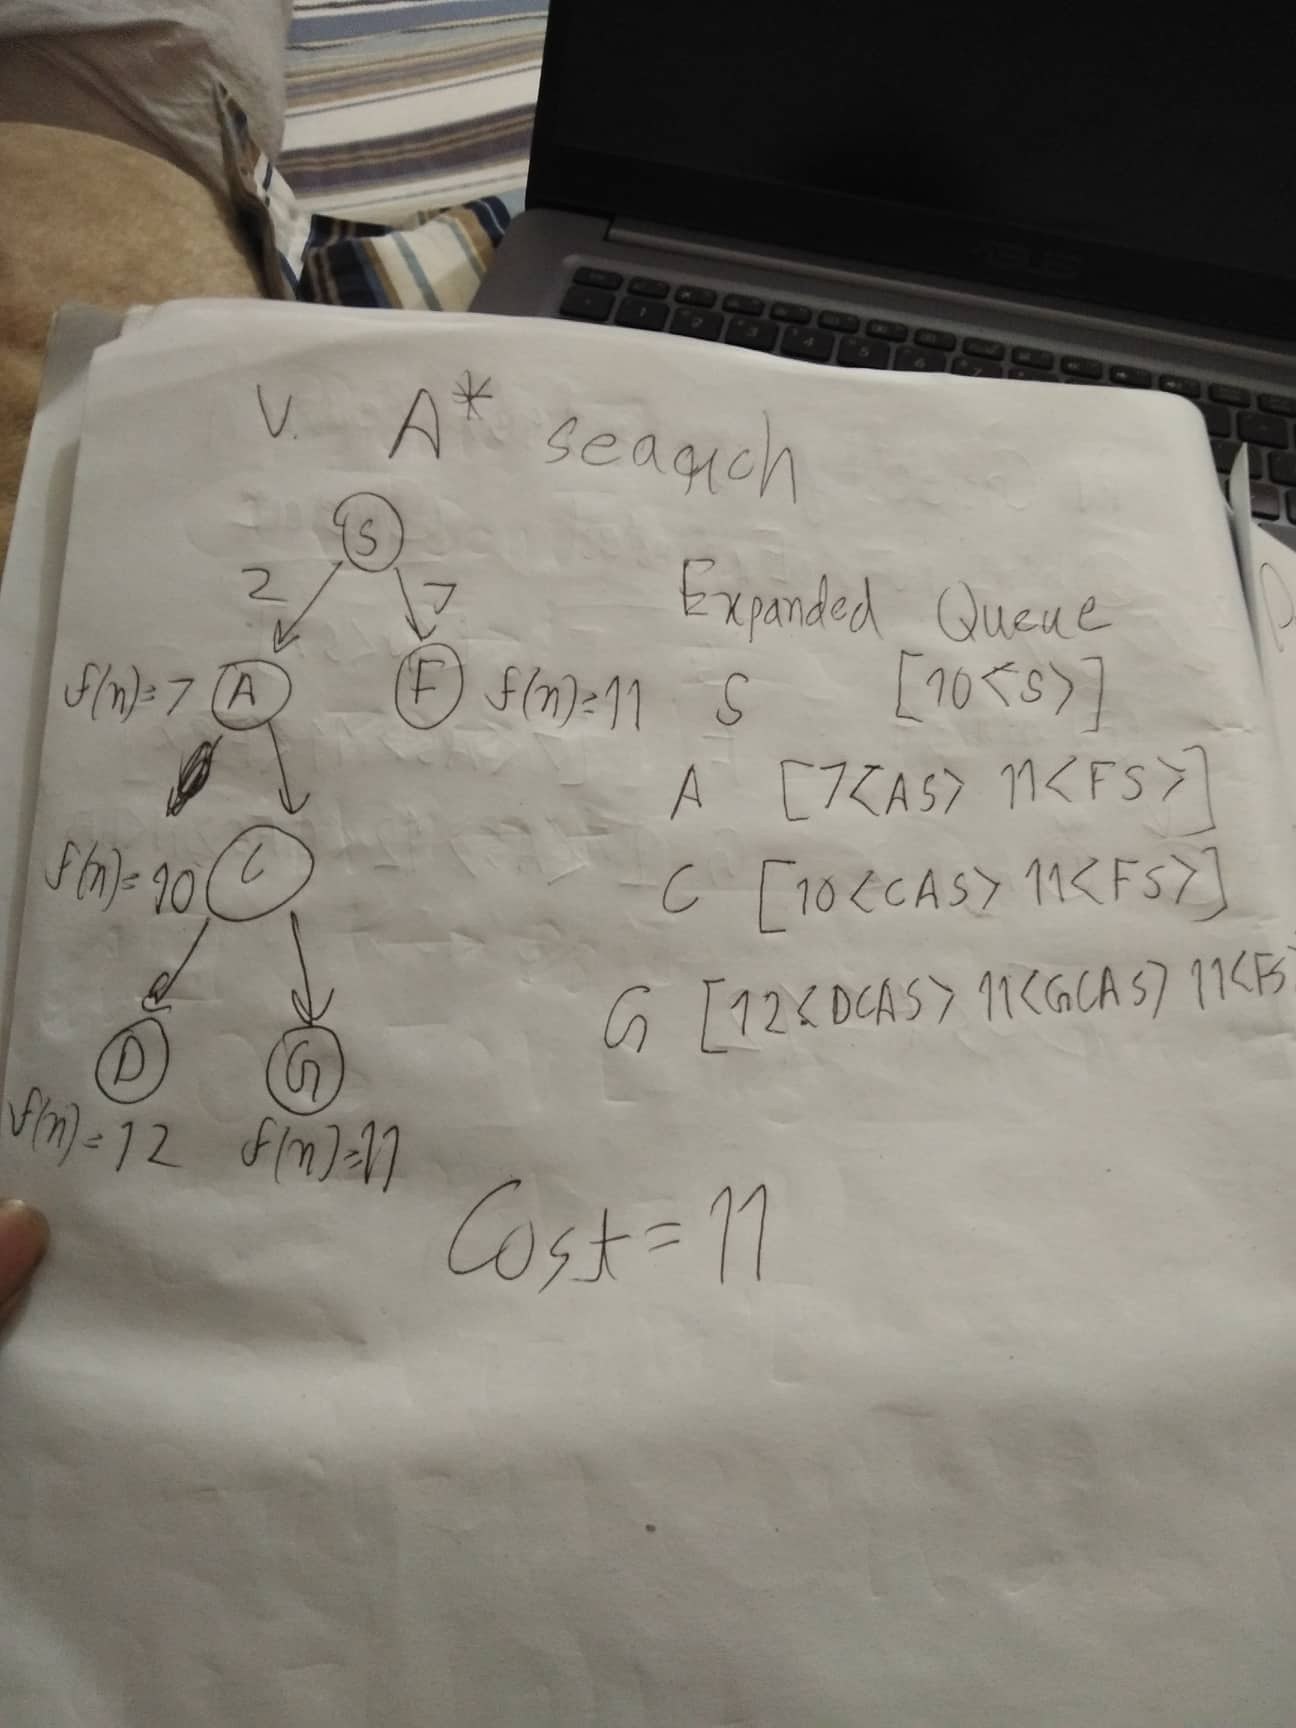 V. A* search
S
2 7
f(n)=7 A F f(n)=11
f(n)=10 C
D G
f(n)=12 f(n)=11
Expanded Queue
S [10<S>]
A [7<AS> 11<FS>]
C [10<CAS> 11<FS>]
G [12<DCAS> 11<GCAS> 11<FS>
Cost = 11